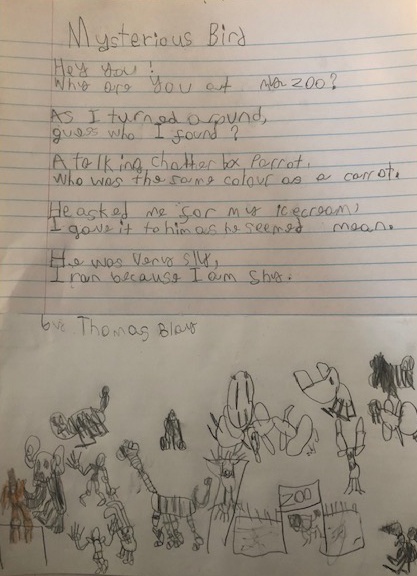 Mysterious Bird
Hey you!
Why are you at the zoo?
As I turned around,
guess who I found?
A talking chatter box Parrot.
Who was the same colour as a carrot.
He asked me for my icecream,
I gave it to him as he seemed mean.
He was very sly,
I ran because I am shy.
by: Thomas Blay
ZOO